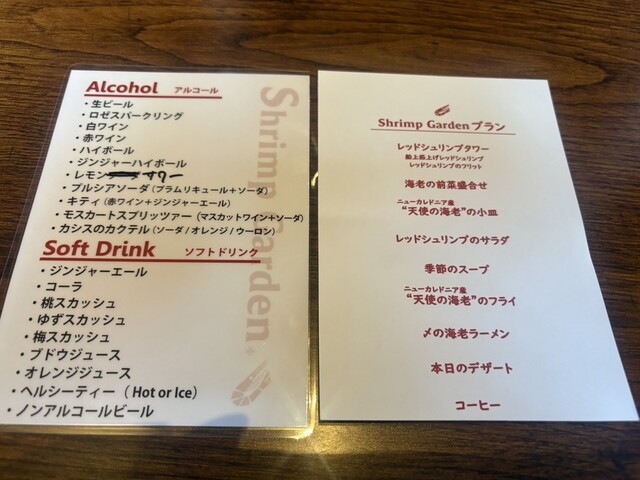 Alcohol アルコール
・生ビール
・ロゼスパークリング
・白ワイン
・赤ワイン
・ハイボール
・ジンジャーハイボール
・レモン サワー
・プルシアソーダ（プラムリキュール＋ソーダ）
・キティ（赤ワイン＋ジンジャーエール）
・モスカートスプリッツァー（マスカットワイン＋ソーダ）
・カシスのカクテル（ソーダ / オレンジ / ウーロン）
Soft Drink ソフトドリンク
・ジンジャーエール
・コーラ
・桃スカッシュ
・ゆずスカッシュ
・梅スカッシュ
・ブドウジュース
・オレンジジュース
・ヘルシーティー（ Hot or Ice）
・ノンアルコールビール
Shrimp Garden
Shrimp Garden プラン
レッドシュリンプタワー
船上箱上げレッドシュリンプ
レッドシュリンプのフリット
海老の前菜盛合せ
ニューカレドニア産
“天使の海老”の小皿
レッドシュリンプのサラダ
季節のスープ
ニューカレドニア産
“天使の海老”のフライ
〆の海老ラーメン
本日のデザート
コーヒー